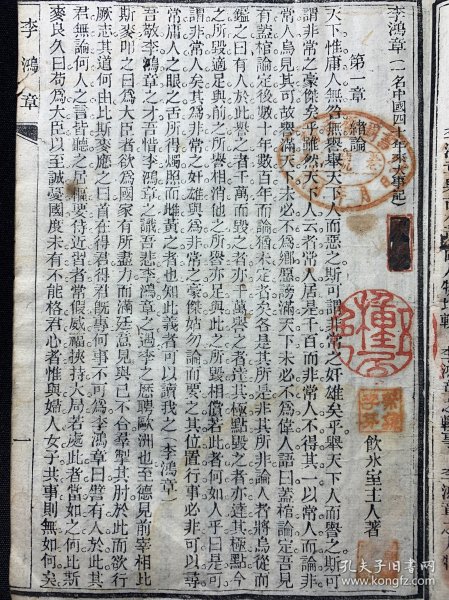 李鴻章(一名中國四十年來大事記)
飲冰室主人著
第一章 緒論
天下惟庸人無咎無譽舉天下人而惡之斯可謂非常之奸雄矣乎舉天下人而譽之斯可
謂非常之豪傑矣乎雖然天下人云者常人居其千百而非常人不得其一以常人而論非
常人烏見其可故譽滿天下未必不爲鄉愿謗滿天下未必不爲偉人語曰蓋棺論定吾見
有蓋棺論定後數十年數百年而論猶未定者矣各是其所是非其所非論人者將烏從而
鑑之曰有人於此譽之者千萬而毀之者亦千萬譽之者達其極點毀之者亦達其極點今
之所毀適足與前之所譽相消他之所譽亦足與此之所毀相償若此者何如人乎曰是可
謂非常人矣其爲非常之奸雄與爲非常之豪傑姑勿論而要之其位置行事必非可以尋
常庸人之眼之舌所得燭照而雌黃之者也知此義者可以讀我之「李鴻章」
吾敬李鴻章之才吾惜李鴻章之識吾悲李鴻章之遇李之歷聘歐洲也至德見前宰相比
斯麥叩之曰爲大臣者欲爲國家有所盡力而滿廷意見與己不合羣掣其肘於此而欲行
厥志其道何由比斯麥應之曰首在得君得君既專何事不可爲李鴻章曰譬有人於此其
君無論何人之言皆聽之居樞要侍近習者常假威福挾持大局若處此者當如之何比斯
麥良久曰苟爲大臣以至誠憂國度未有不能格君心者惟與婦人女子共事則無如何矣
李鴻章
一
孔夫子舊書網